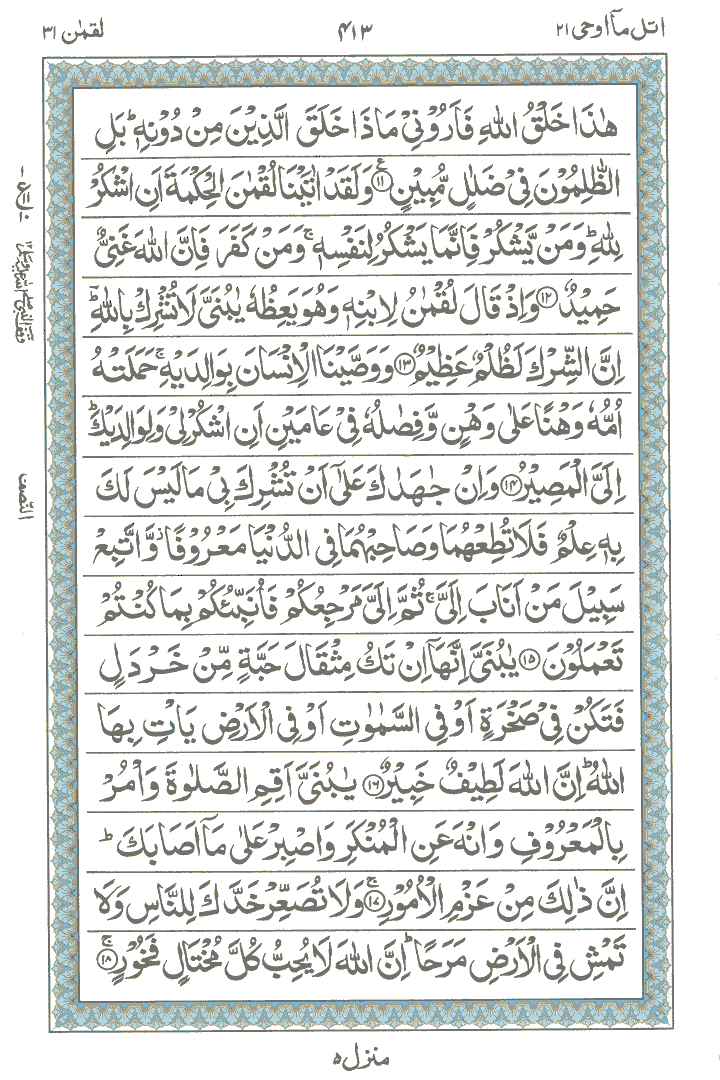 اتل مآ اوحی ۲۱
۴۱۳
لقمٰن ۳۱
هٰذَا خَلْقُ اللّٰهِ فَاَرُوْنِیْ مَاذَا خَلَقَ الَّذِیْنَ مِنْ دُوْنِهٖ ؕ بَلِ
الظّٰلِمُوْنَ فِیْ ضَلٰلٍ مُّبِیْنٍ ﴿۱۱﴾ ع وَ لَقَدْ اٰتَیْنَا لُقْمٰنَ الْحِكْمَةَ اَنِ اشْكُرْ
لِلّٰهِ ؕ وَ مَنْ یَّشْكُرْ فَاِنَّمَا یَشْكُرُ لِنَفْسِهٖ ۚ وَ مَنْ كَفَرَ فَاِنَّ اللّٰهَ غَنِیٌّ
حَمِیْدٌ ﴿۱۲﴾ وَ اِذْ قَالَ لُقْمٰنُ لِابْنِهٖ وَ هُوَ یَعِظُهٗ یٰبُنَیَّ لَا تُشْرِكْ بِاللّٰهِ ؕ
اِنَّ الشِّرْكَ لَظُلْمٌ عَظِیْمٌ ﴿۱۳﴾ وَ وَصَّیْنَا الْاِنْسَانَ بِوَالِدَیْهِ ۚ حَمَلَتْهُ
اُمُّهٗ وَهْنًا عَلٰی وَهْنٍ وَّ فِصٰلُهٗ فِیْ عَامَیْنِ اَنِ اشْكُرْ لِیْ وَ لِوَالِدَیْكَ ؕ
اِلَیَّ الْمَصِیْرُ ﴿۱۴﴾ وَ اِنْ جٰهَدٰكَ عَلٰۤی اَنْ تُشْرِكَ بِیْ مَا لَیْسَ لَكَ
بِهٖ عِلْمٌ فَلَا تُطِعْهُمَا وَ صَاحِبْهُمَا فِی الدُّنْیَا مَعْرُوْفًا ؗ وَّ اتَّبِعْ
سَبِیْلَ مَنْ اَنَابَ اِلَیَّ ۚ ثُمَّ اِلَیَّ مَرْجِعُكُمْ فَاُنَبِّئُكُمْ بِمَا كُنْتُمْ
تَعْمَلُوْنَ ﴿۱۵﴾ یٰبُنَیَّ اِنَّهَاۤ اِنْ تَكُ مِثْقَالَ حَبَّةٍ مِّنْ خَرْدَلٍ
فَتَكُنْ فِیْ صَخْرَةٍ اَوْ فِی السَّمٰوٰتِ اَوْ فِی الْاَرْضِ یَاْتِ بِهَا
اللّٰهُ ؕ اِنَّ اللّٰهَ لَطِیْفٌ خَبِیْرٌ ﴿۱۶﴾ یٰبُنَیَّ اَقِمِ الصَّلٰوةَ وَ اْمُرْ
بِالْمَعْرُوْفِ وَ انْهَ عَنِ الْمُنْكَرِ وَ اصْبِرْ عَلٰی مَاۤ اَصَابَكَ ؕ
اِنَّ ذٰلِكَ مِنْ عَزْمِ الْاُمُوْرِ ۚ ﴿۱۷﴾ وَ لَا تُصَعِّرْ خَدَّكَ لِلنَّاسِ وَ لَا
تَمْشِ فِی الْاَرْضِ مَرَحًا ؕ اِنَّ اللّٰهَ لَا یُحِبُّ كُلَّ مُخْتَالٍ فَخُوْرٍ ۚ ﴿۱۸﴾
النّصف
منزل ۵